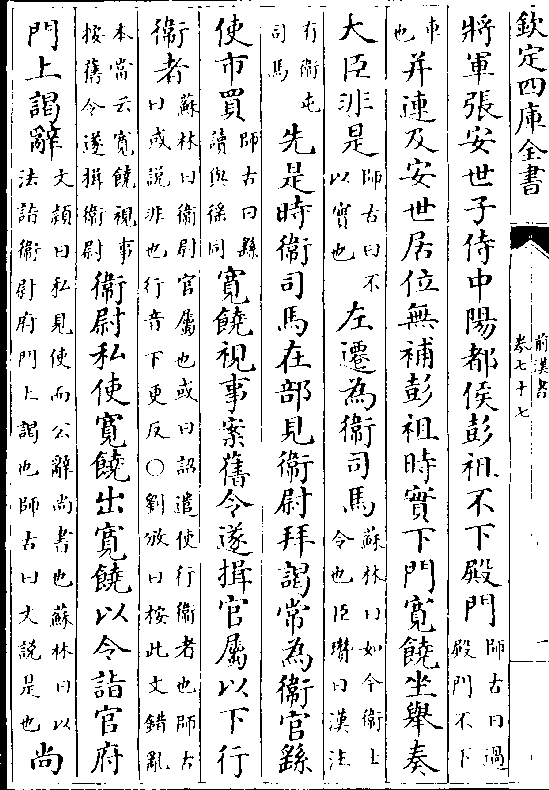 欽定四庫全書
前漢書
卷七十七
一
將軍張安世子侍中陽都侯彭祖不下殿門師古曰過殿門不下
車也并連及安世居位無補彭祖時實下門寬饒坐舉奏
大臣非是師古曰不以實也左遷為衛司馬蘇林曰如今衛士令也臣瓚曰漢注
有衛屯司馬先是時衛司馬在部見衛尉拜謁常為衛官繇
使市買師古曰繇讀與徭同寬饒視事案舊令遂揖官屬以下行
衛者蘇林曰衛尉官屬也或曰詔遣使行衛者也師古曰或說非也行音下更反○劉攽曰按此文錯亂
本當云寬饒視事按舊令遂揖衛尉衛尉私使寬饒出寬饒以令詣官府
門上謁辭文頴曰私見使而公辭尚書也蘇林曰以法詣衛尉府門上謁也師古曰文說是也尚